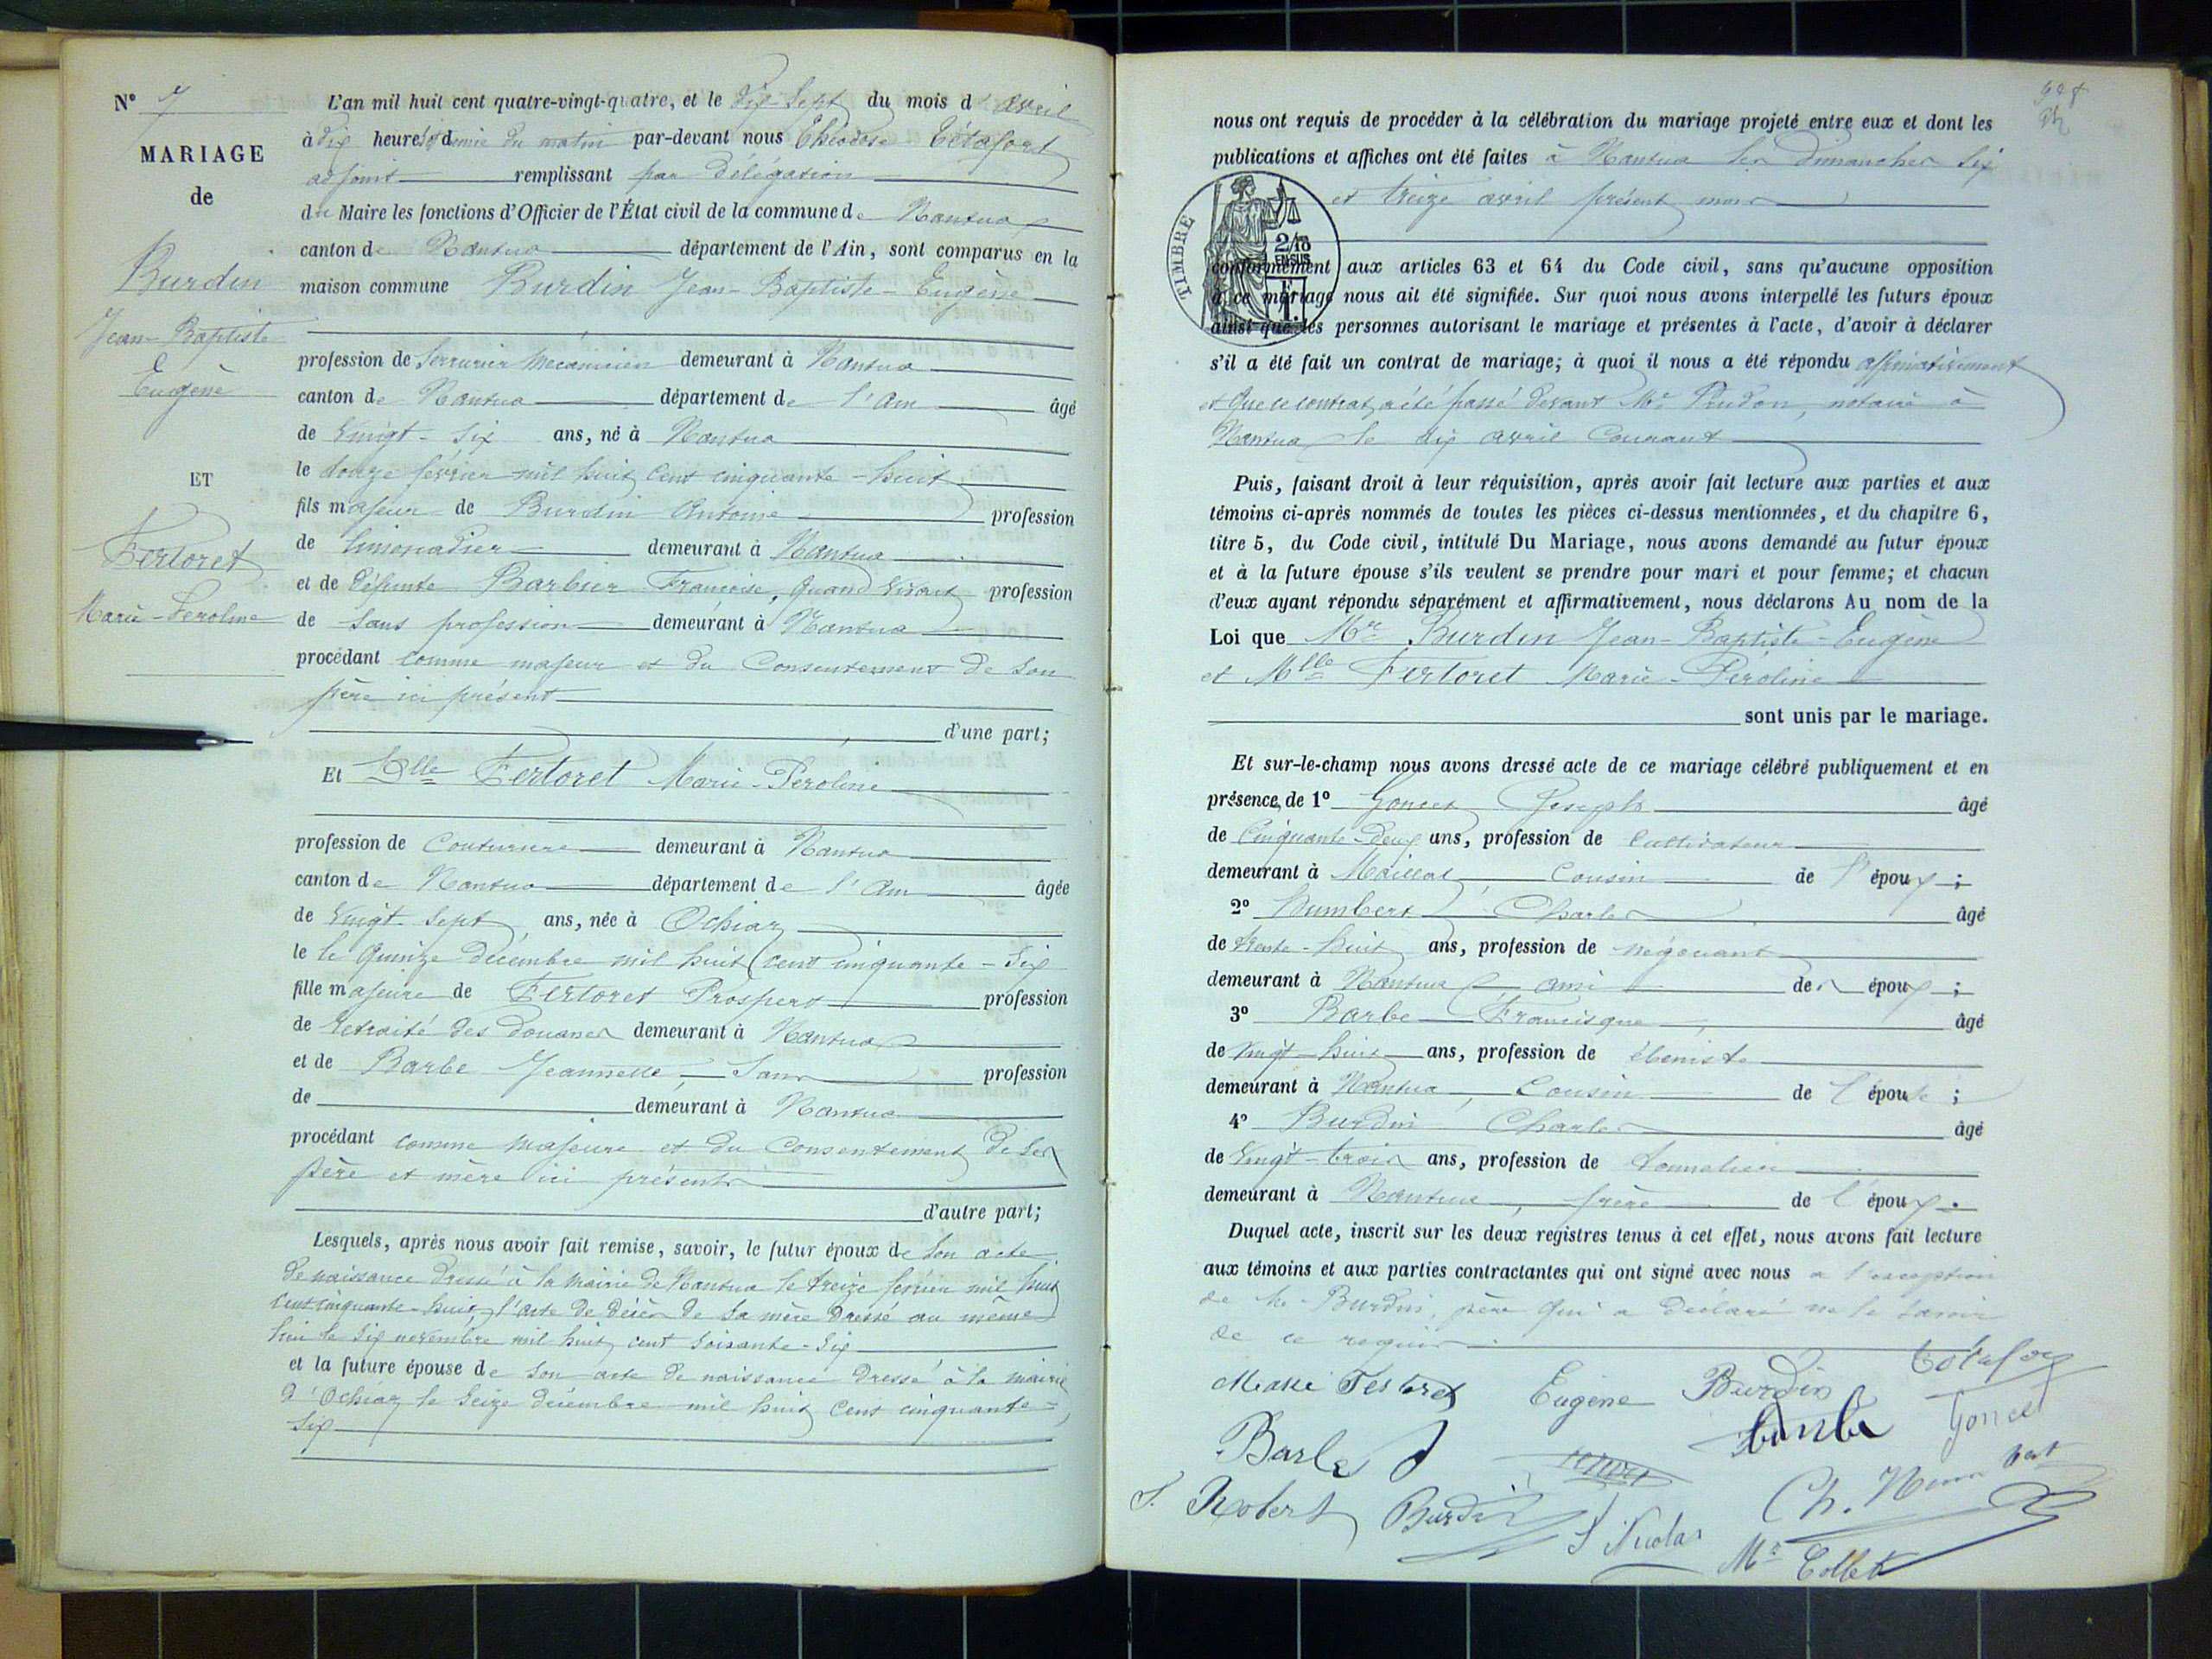 N° 7
MARIAGE
de
Burdin
Jean-Baptiste
Eugène
ET
Fertoret
Marie-Péroline
L'an mil huit cent quatre-vingt-quatre, et le dix-sept du mois d'avril
à dix heures & demie du matin par-devant nous Théodose Tétafort
adjoint remplissant par délégation
du Maire les fonctions d'Officier de l'État civil de la commune de Nantua
canton de Nantua département de l'Ain, sont comparus en la
maison commune Burdin Jean-Baptiste-Eugène
profession de serrurier mécanicien demeurant à Nantua
canton de Nantua département de l'Ain âgé
de vingt-six ans, né à Nantua
le douze février mil huit cent cinquante-huit
fils majeur de Burdin Antoine profession
de limonadier demeurant à Nantua
et de défunte Barbier Françoise, quand vivait profession
de sans profession demeurant à Nantua
procédant comme majeur et du consentement de son
père ici présent
d'une part;
Et Dlle Fertoret Marie-Péroline
profession de couturière demeurant à Nantua
canton de Nantua département de l'Ain âgée
de vingt-sept ans, née à Ochiaz
le le quinze décembre mil huit cent cinquante-six
fille majeure de Fertoret Prosper profession
de retraité des douanes demeurant à Nantua
et de Barbe Jeannette, sans profession
de demeurant à Nantua
procédant comme majeure et du consentement de ses
père et mère ici présents
d'autre part;
Lesquels, après nous avoir fait remise, savoir, le futur époux de son acte
de naissance dressé à la mairie de Nantua le treize février mil huit
cent cinquante-huit, l'acte de décès de sa mère dressé au même
lieu le six novembre mil huit cent soixante-six
et la future épouse de son acte de naissance dressé à la mairie
d'Ochiaz le seize décembre mil huit cent cinquante-
six
nous ont requis de procéder à la célébration du mariage projeté entre eux et dont les
publications et affiches ont été faites à Nantua les dimanches six
et treize avril présent mois
TIMBRE
2/10
EN SUS
conformément aux articles 63 et 64 du Code civil, sans qu'aucune opposition
à ce mariage nous ait été signifiée. Sur quoi nous avons interpellé les futurs époux
ainsi que les personnes autorisant le mariage et présentes à l'acte, d'avoir à déclarer
s'il a été fait un contrat de mariage; à quoi il nous a été répondu affirmativement
et que ce contrat a été passé devant Me Prudon, notaire à
Nantua le dix avril courant
Puis, faisant droit à leur réquisition, après avoir fait lecture aux parties et aux
témoins ci-après nommés de toutes les pièces ci-dessus mentionnées, et du chapitre 6,
titre 5, du Code civil, intitulé Du Mariage, nous avons demandé au futur époux
et à la future épouse s'ils veulent se prendre pour mari et pour femme; et chacun
d'eux ayant répondu séparément et affirmativement, nous déclarons Au nom de la
Loi que Mr Burdin Jean-Baptiste-Eugène
et Mlle Fertoret Marie-Péroline
sont unis par le mariage.
Et sur-le-champ nous avons dressé acte de ce mariage célébré publiquement et en
présence, de 1° Goncet Joseph âgé
de cinquante-deux ans, profession de cultivateur
demeurant à Maillat, cousin de l'époux;
2° Humbert Charles âgé
de trente-huit ans, profession de négociant
demeurant à Nantua, ami des époux;
3° Barbe Francisque âgé
de vingt-huit ans, profession de ébéniste
demeurant à Nantua, cousin de l'épouse;
4° Burdin Charles âgé
de vingt-trois ans, profession de tonnelier
demeurant à Nantua, frère de l'époux.
Duquel acte, inscrit sur les deux registres tenus à cet effet, nous avons fait lecture
aux témoins et aux parties contractantes qui ont signé avec nous à l'exception
de Mr Burdin, père qui a déclaré ne le savoir
de ce requis.
Marie Fertoret Eugène Burdin Tétafort
Barbe Goncet
Ch. Humbert
J. Robert Burdin J Nicolas Mr Collet